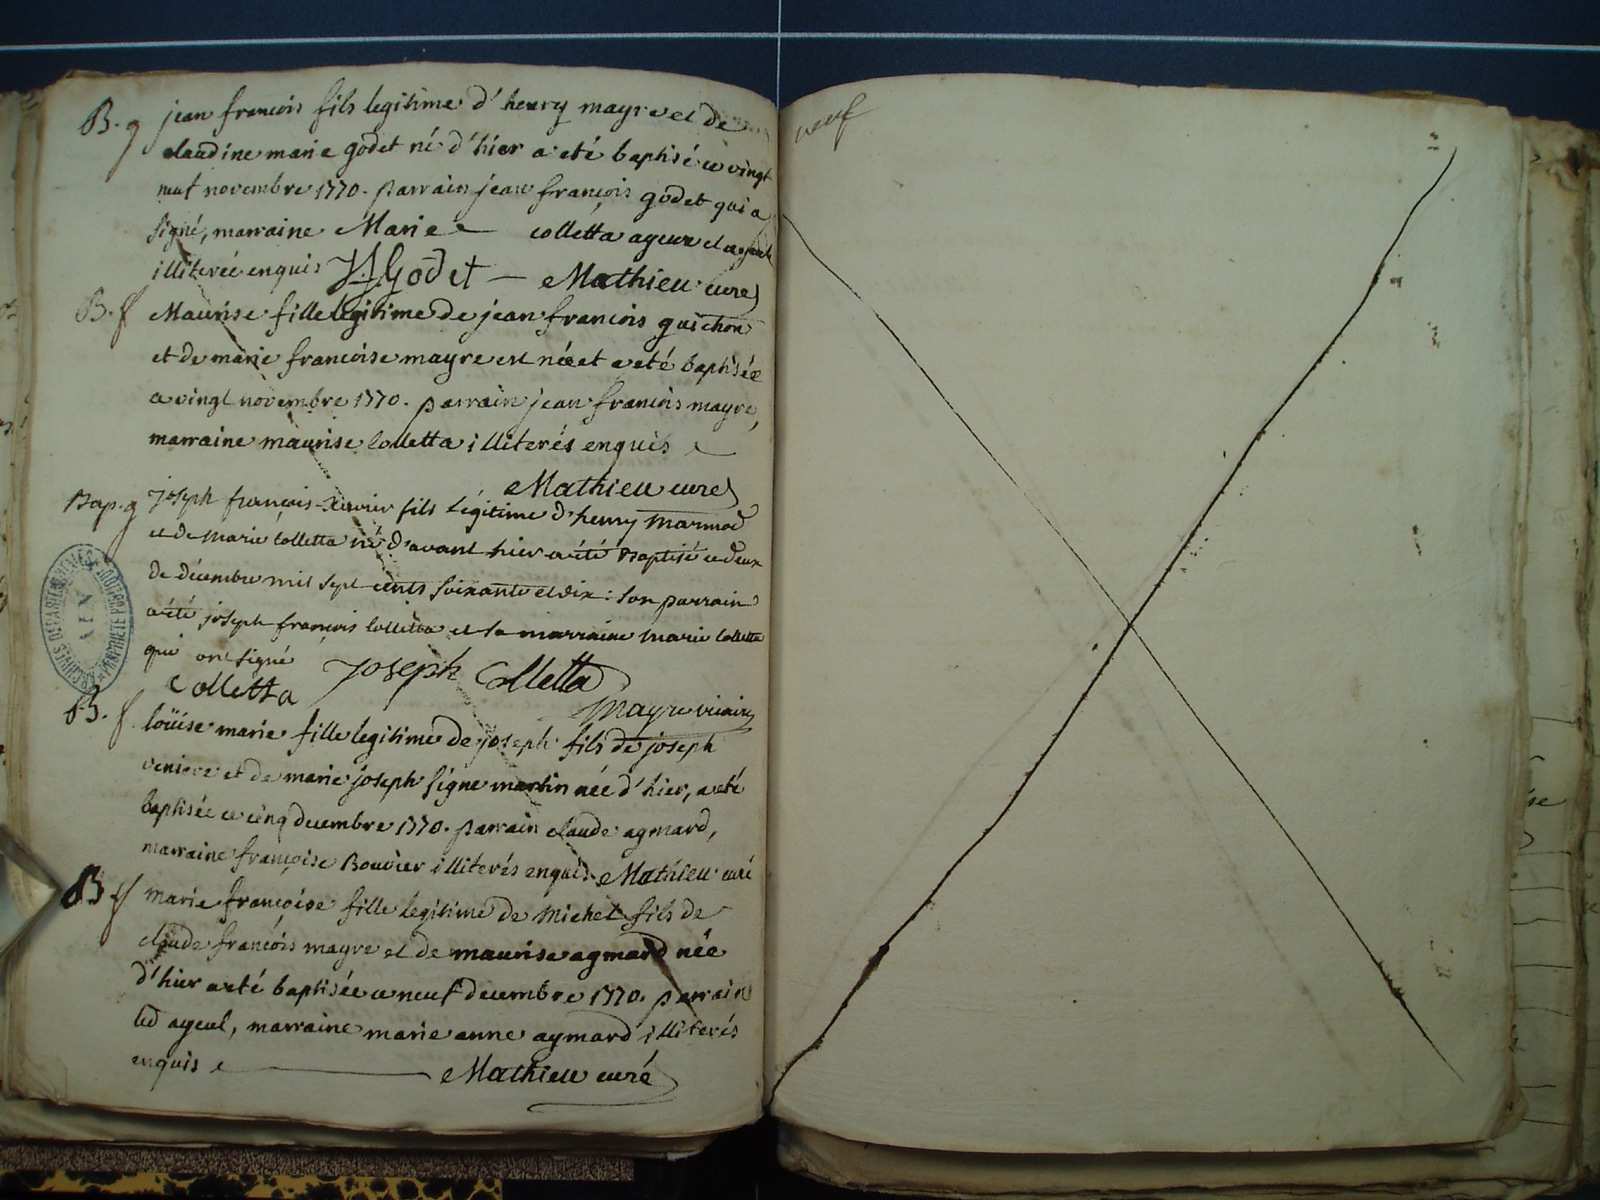 B. g jean francois fils legitime d'henry mayre et de
claudine marie godet né d'hier a eté baptisé ce vingt
neuf novembre 1770. parrain jean françois godet qui a
signé, marraine Marie colletta ayeux
illiterée enquis JfGodet Mathieu curé
B. f Maurise fille legitime de jean francois guichon
et de marie francoise mayre est née et a eté baptisée
a vingt novembre 1770. parrain jean francois mayre,
marraine maurise Colletta illiterés enquis
Mathieu curé
Bap. g joseph françois Xavier fils légitime d'henry Marmod
et de Marie Colletta né d'avant hier a été Baptisé ce deux
de décembre mil sept cents soixante et dix : son parrain
a été joseph francois Colletta et sa marraine Marie Colletta
qui ont signé Joseph Colletta
Colletta
Mayre vicaire
B. f loüise marie fille legitime de joseph fils de joseph
veniere et de marie joseph signe martin née d'hier, a eté
baptisée ce cinq decembre 1770. parrain claude aymard,
marraine françoise Bouvier illiterés enquis Mathieu curé
B f marie françoise fille legitime de Michel fils de
claude françois mayre et de maurise aymard née
d'hier a eté baptisée ce neuf decembre 1770. parrain
led ayeul, marraine marie anne aymard illiterés
enquis Mathieu curé
neuf
ARCHIVES DEPARTEMENTALES DU DOUBS
PROPRIETE PUBLIQUE